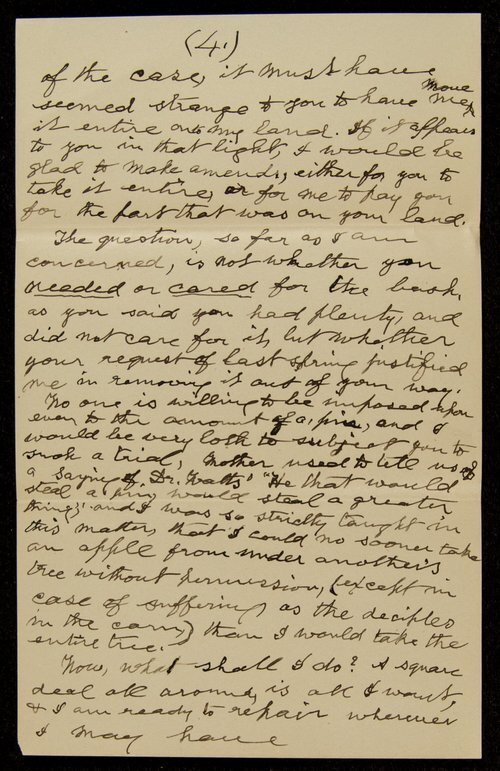 (4.)
of the case, it must have
seemed strange to you to have me move
it entire onto my land. If it appears
to you in that light, I would be
glad to make amends, either for you to
take it entire, or for me to pay you
for the part that was on your land.
The question, so far as I am
concerned, is not whether you
needed or cared for the bush,
as you said you had plenty, and
did not care for it, but whether
your request of last spring justified
me in removing it out of your way.
No one is willing to be imposed upon
even to the amount of a pin, and I
would be very loth to subject you to
such a trial, Mother used to tell us of
a saying of Dr. Watts' "He that would
steal a pin, would steal a greater
thing," and I was so strictly taught in
this matter, that I could no sooner take
an apple from under another's
tree without permission, (except in
case of suffering, as the deciples
in the corn,) than I would take the
entire tree.
Now, what shall I do? A square
deal all around, is all I want,
& I am ready to repair wherever
I may have